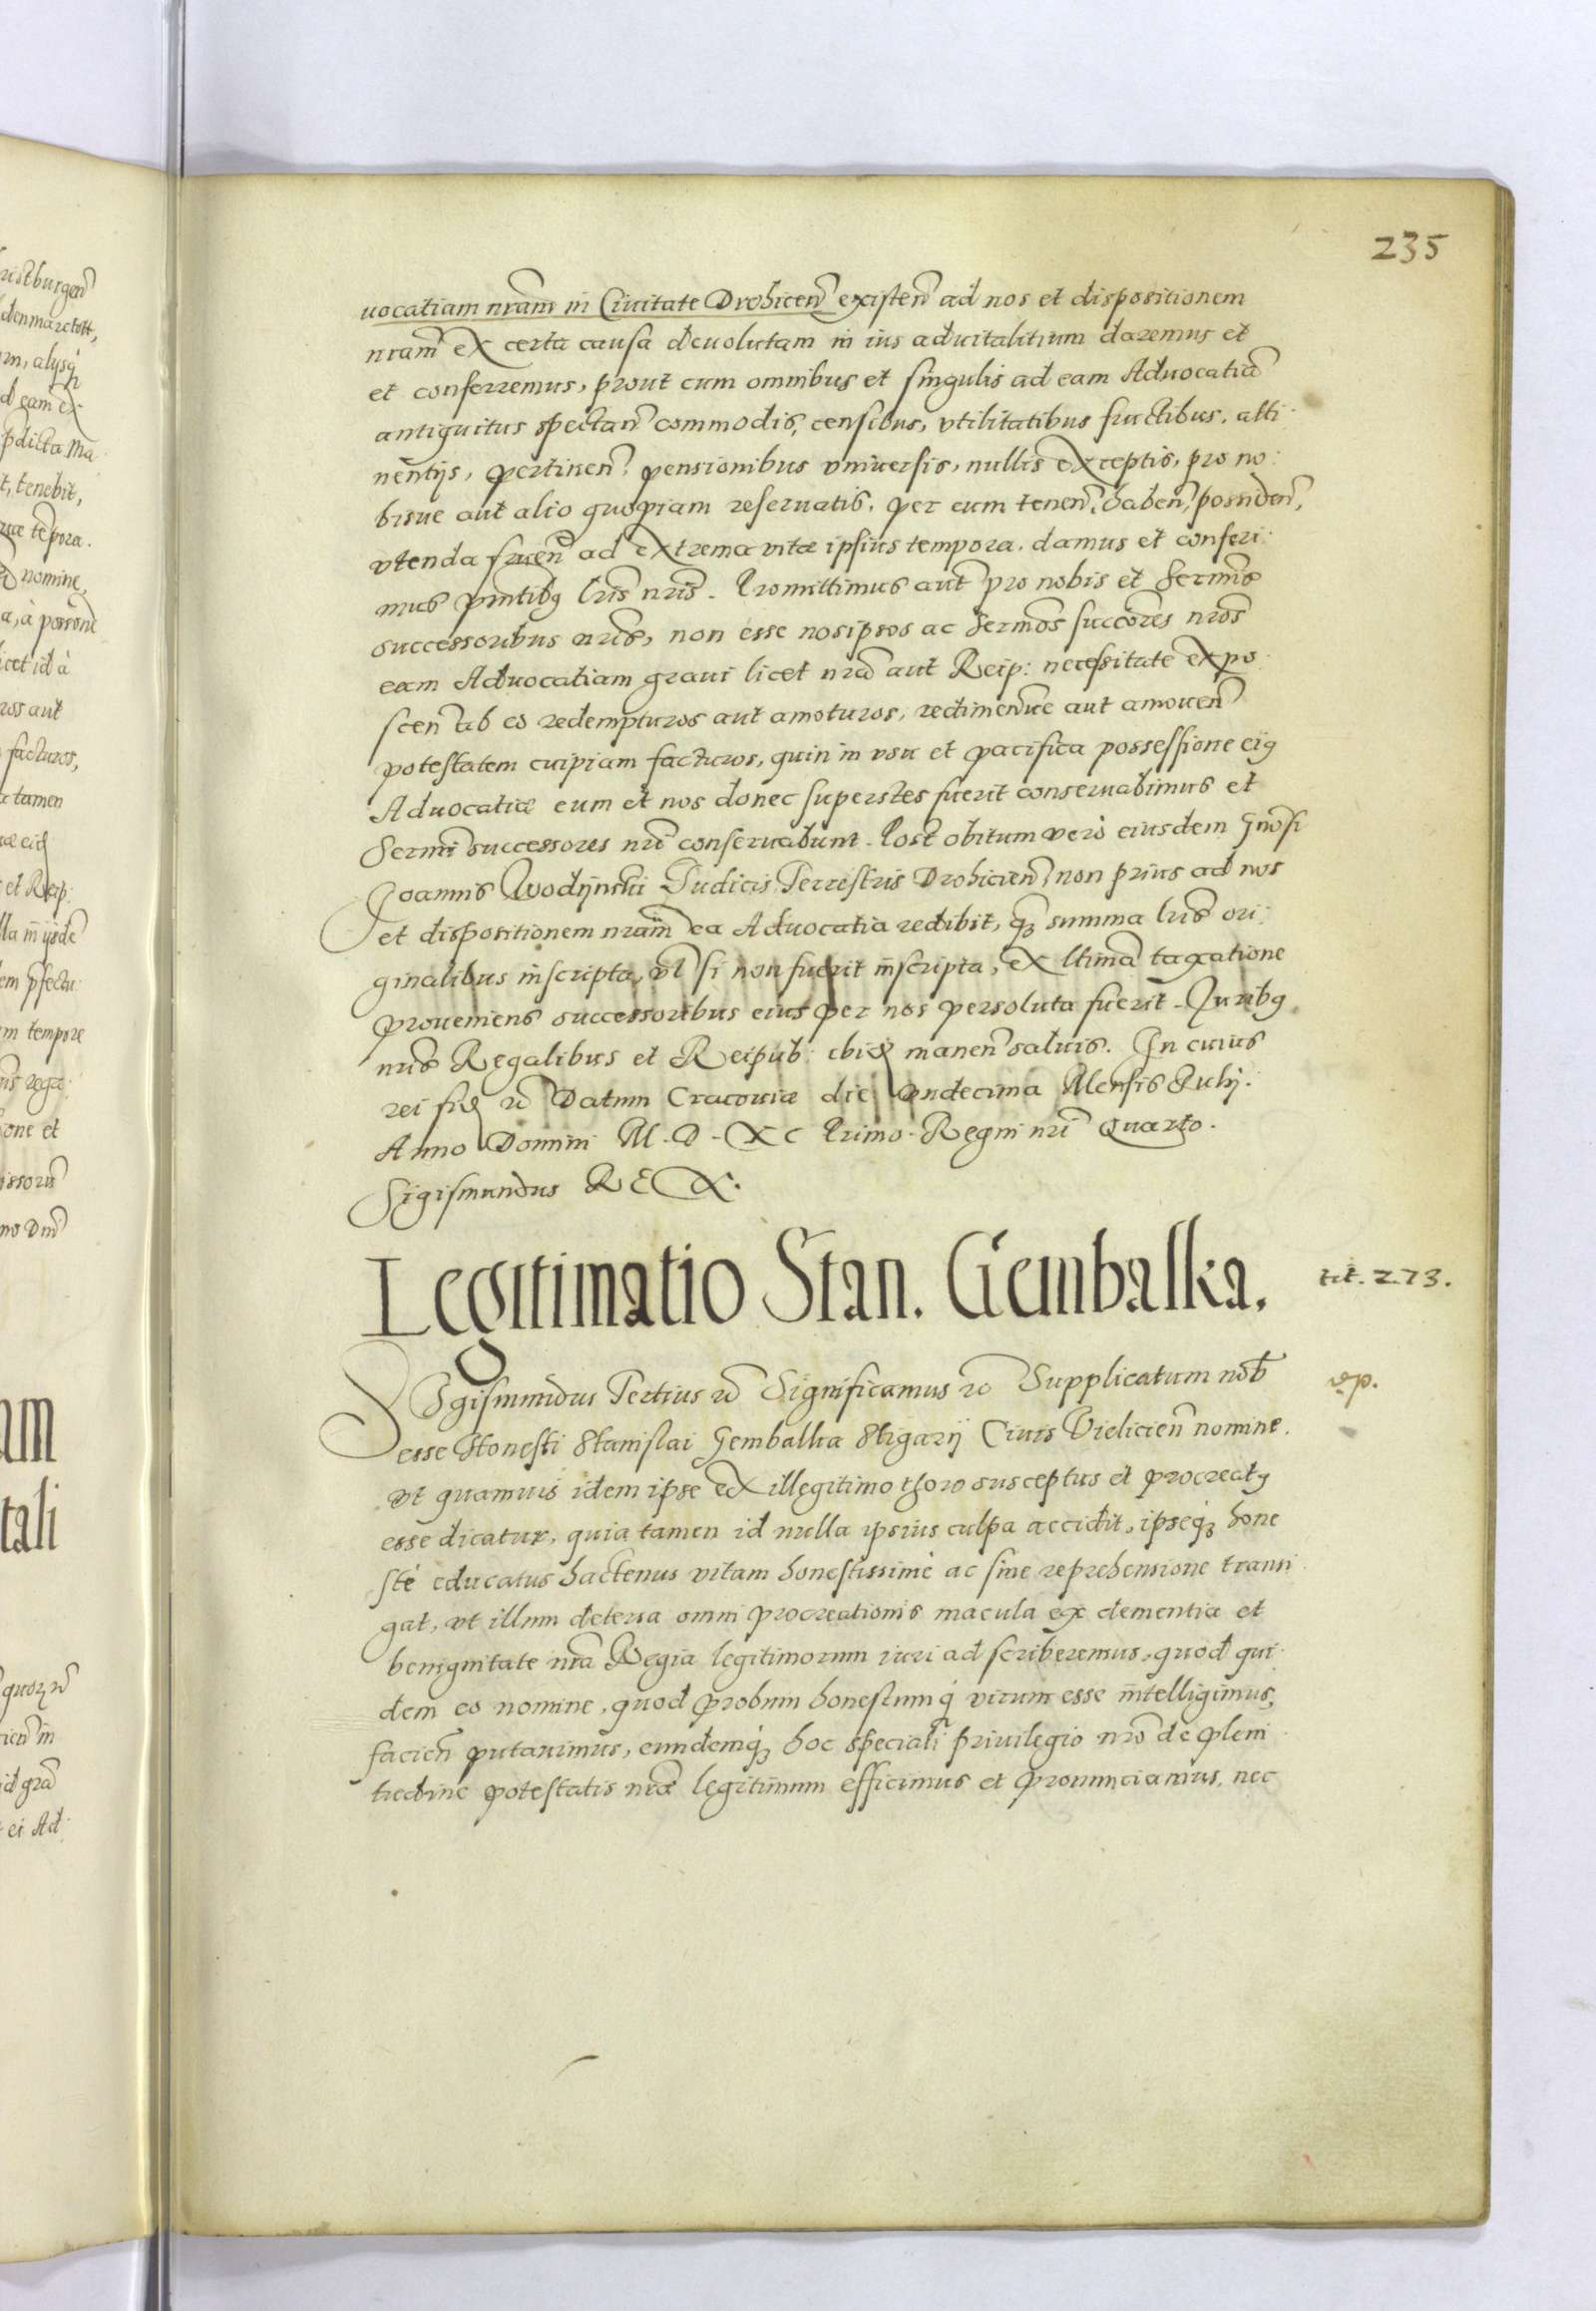 235
uocatiam nram̃ in Ciuitate Drohicen̄ existen̄ ad nos et dispositionem
nram̃ ex certa causa deuolutam in ius aduitalitium daremus et
et conferremus, prout cum omnibus et singulis ad eam Aduocatiā
antiquitus spectan̄ commodis, censibus, vtilitatibus fructibus, atti:
nentijs, pertinen̄, pensionibus vniuersis, nullis exceptis, pro no:
bisue aut alio quopiam reseruatis, per eum tenen̄, haben̄, possiden̄,
vtenda fruen̄ ad extrema vitæ ipsius tempora. damus et conferi:
mus pn̄tibꝯ lris nris. Promittimus aut̄ pro nobis et Serm̄is
successoribus nris, non esse nosipsos ac Sermōs succōres nrōs
eam Aduocatiam graui licet nrā aut Reip: necessitate expo
scen̄ ab eo redempturos aut amoturos, redimen̄ue aut amouen̄
potestatem cuipiam facturos, quin in vsu et pacifica possessione eiꝯ
Aduocatiæ eum et nos donec superstes fuerit conseruabimus et
Serm̄i successores nrī conseruabunt. Post obitum verò eiusdem Gn̄osi
Joannis Wodijnski Judicis Terrestris Drohicien̄, non prius ad nos
et dispositionem nram̃ ea Aduocatia redibit, qꝫ summa lris ori:
ginalibus inscripta, vl̄ si non fuerit inscripta, ex ltima taxatione
proueniens successoribus eius per nos persoluta fuerit. Juribꝯ
nris Regalibus et Reipub: ibiꝗ manen̄ saluis. In cuius
rei fiꝗ rc̄ Datum Cracouiæ die vndecima Mensis Julij.
Anno Domini M. D. XC Primo. Regni nrī Quarto.
Sigismundus REX.
Legitimatio Stan. Gembalka. tit. 273.
Sigismundus Tertius rc̄ Significamus rc̄ Supplicatum nob̄
esse Honesti Stanislai Gembalka Ciuis Vielicien̄ nomine.
vt quamuis idem ipse ex illegitimo thoro susceptus et procreatꝯ
esse dicatur, quia tamen id nulla ipsius culpa accidit, ipseqꝫ hone
stè educatus hactenus vitam honestissimè ac sine reprehensione transi
gat, vt illum detersa omni procreationis macula ex clementia et
benignitate nrā Regia legitimorum iuri adscriberemus, quod qui:
dem eo nomine, quod probum honestumq́ virum esse intelligimus,
facien̄ putauimus, eundemqꝫ hoc speciali priuilegio nrō de pleni
tudine potestatis nræ legitimum efficimus et pronunciamus, nec